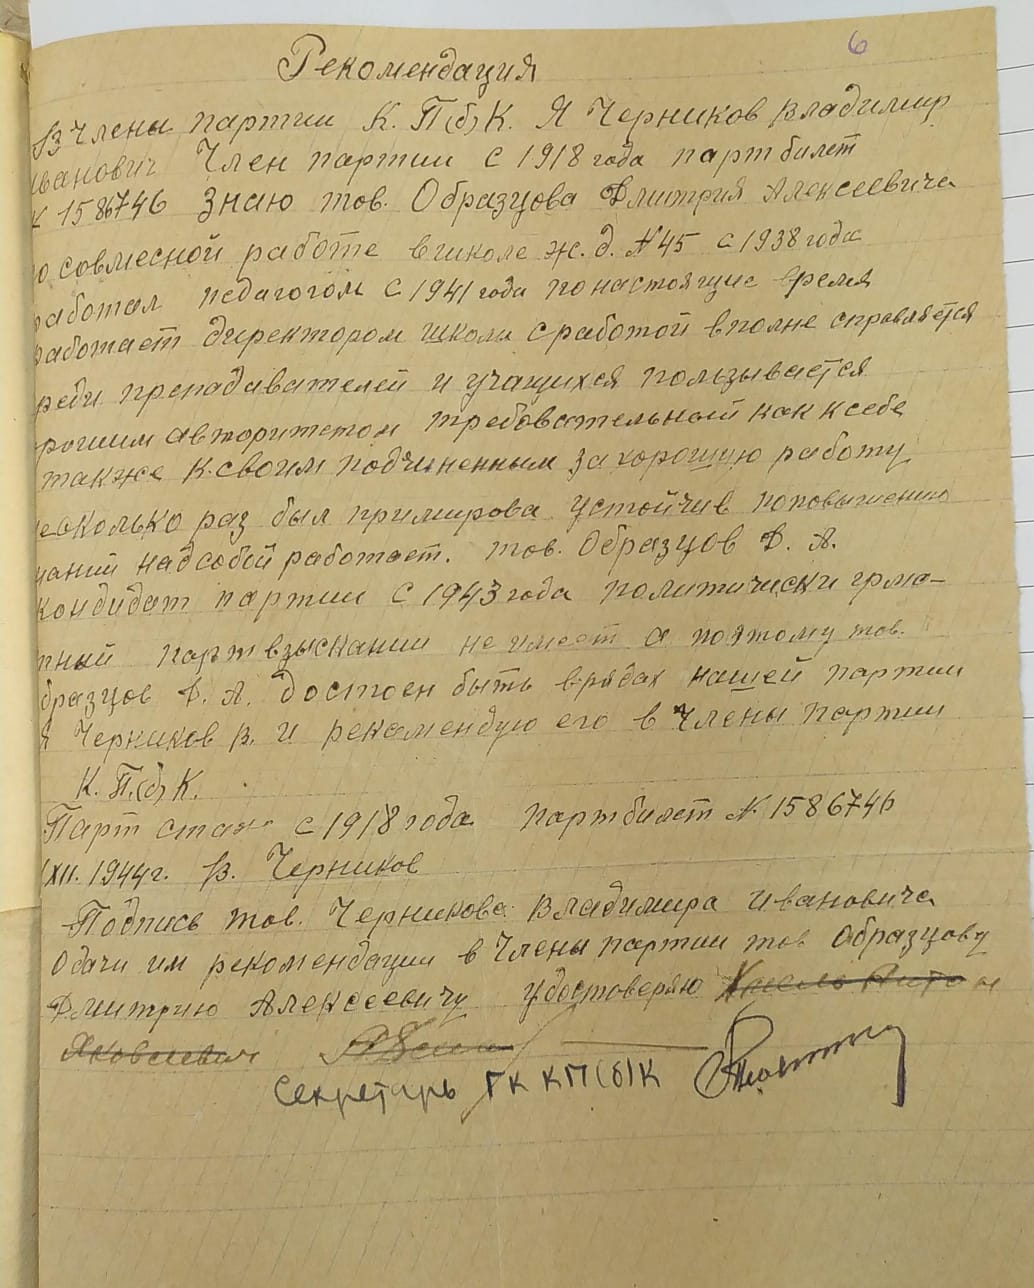 6
Рекомендация
В члены партии К. П(б)К. Я Черников Владимир
иванович член партии с 1918 года партбилет
1586746 знаю тов. Образцова Дмитрия Алексеевича
по совмесной работе в школе ж. д. №45 с 1938 года
работал педагогом с 1941 года по настоящие время
работает директором школы с работой вполне справляется
реди препадавателей и учащихся пользывается
рошим авторитетом требовательный как к себе
также к своим подчиненным за хорошую работу
несколько раз был примирова устойчив по повышению
наний над собой работает. тов. Образцов Д. А.
кондидат партии с 1943 года политически грма-
тный парт взыскании не имеет а поэтому тов.
бразцов Д. А. достоен быть в рядах нашей партии
Я Черников В. И рекамендую его в члены партии
К. П.(б)К.
Парт стаж с 1918 года партбилет № 1586746
XII. 1944г. В. Черников
Подпись тов. Черникова Владимира ивановича
Одачи им рекомендации в члены партии тов Образцову
Дмитрию Алексеевичу удостоверяю
Яковлевич
Секретарь ГК КП(б)К